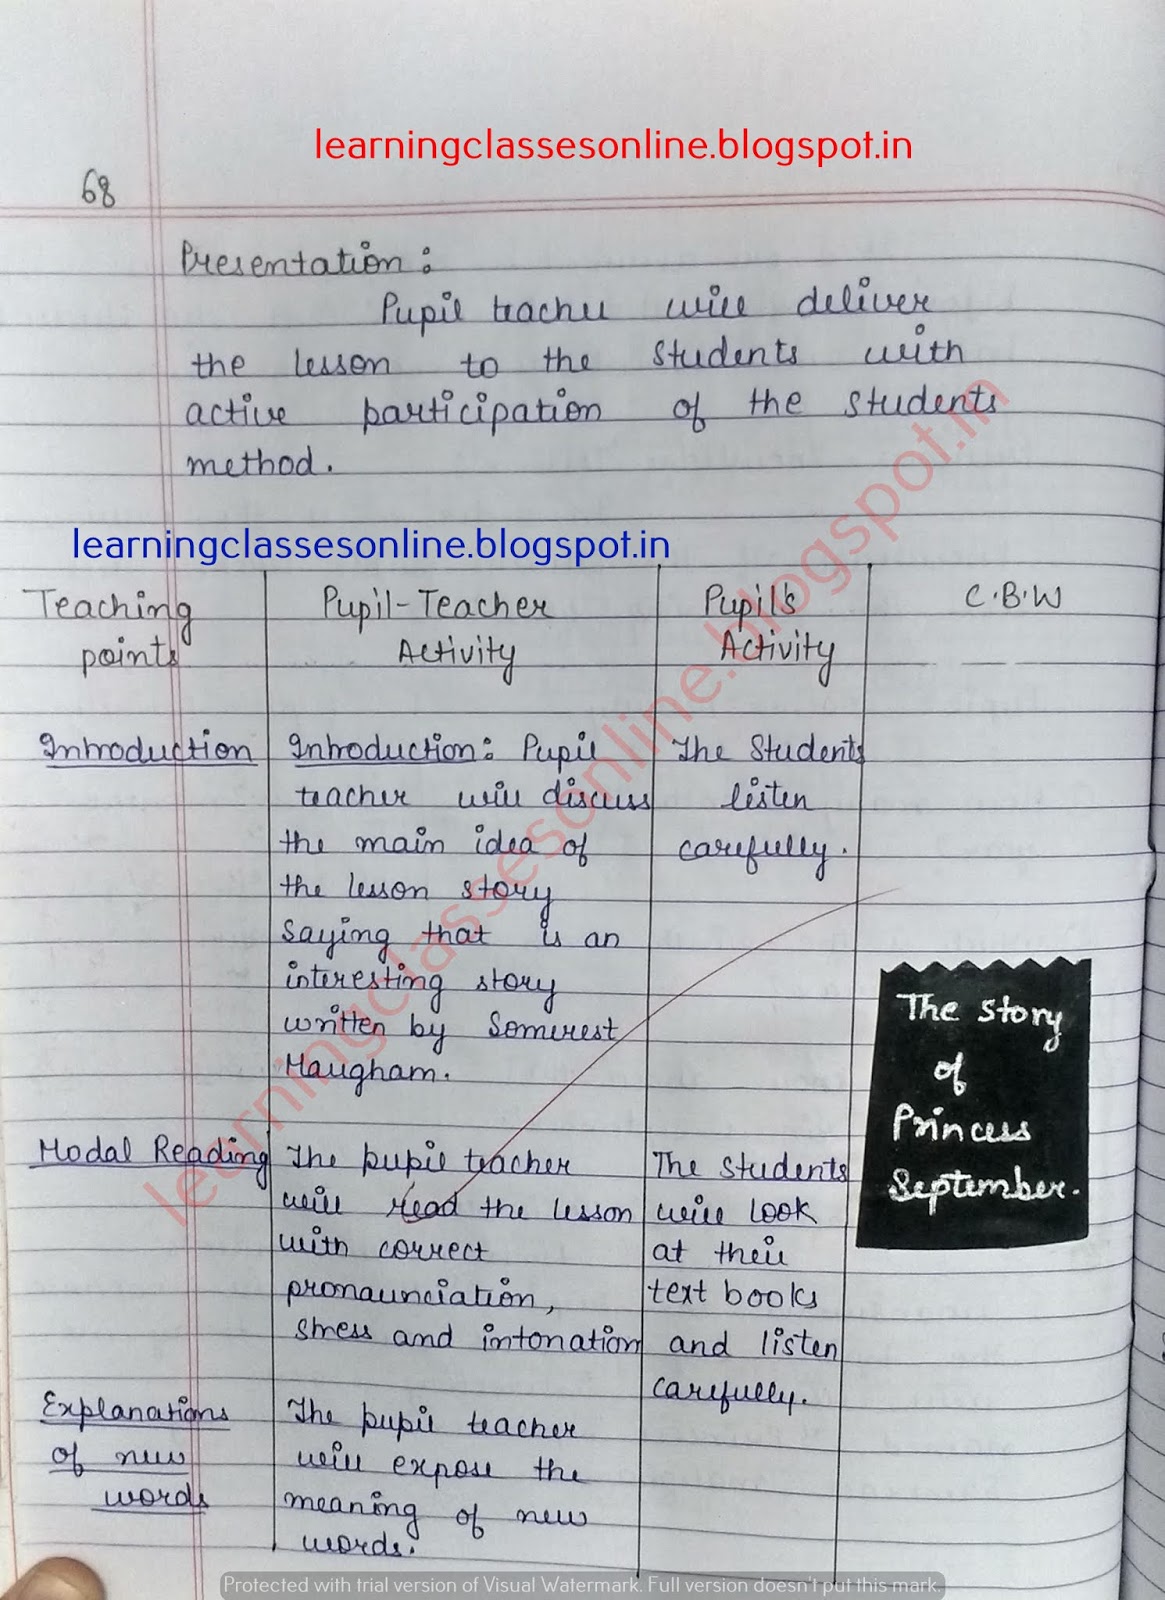 learningclassesonline.blogspot.in
68
Presentation:
Pupil teacher will deliver
the lesson to the students with
active participation of the students
method.
learningclassesonline.blogspot.in
Teaching
points
Pupil-Teacher
Activity
Pupil's
Activity
C.B.W
Introduction
Introduction: Pupil
teacher will discuss
the main idea of
the lesson story
saying that is an
interesting story
written by Somerest
Maugham.
The Students
listen
carefully.
The story
of
Princess
September.
Modal Reading
The pupil teacher
will read the lesson
with correct
pronaunciation,
stress and intonation
The students
will look
at their
text books
and listen
carefully.
Explanations
of new
words
The pupil teacher
will expose the
meaning of new
words.
learningclassesonline.blogspot.in
Protected with trial version of Visual Watermark. Full version doesn't put this mark.